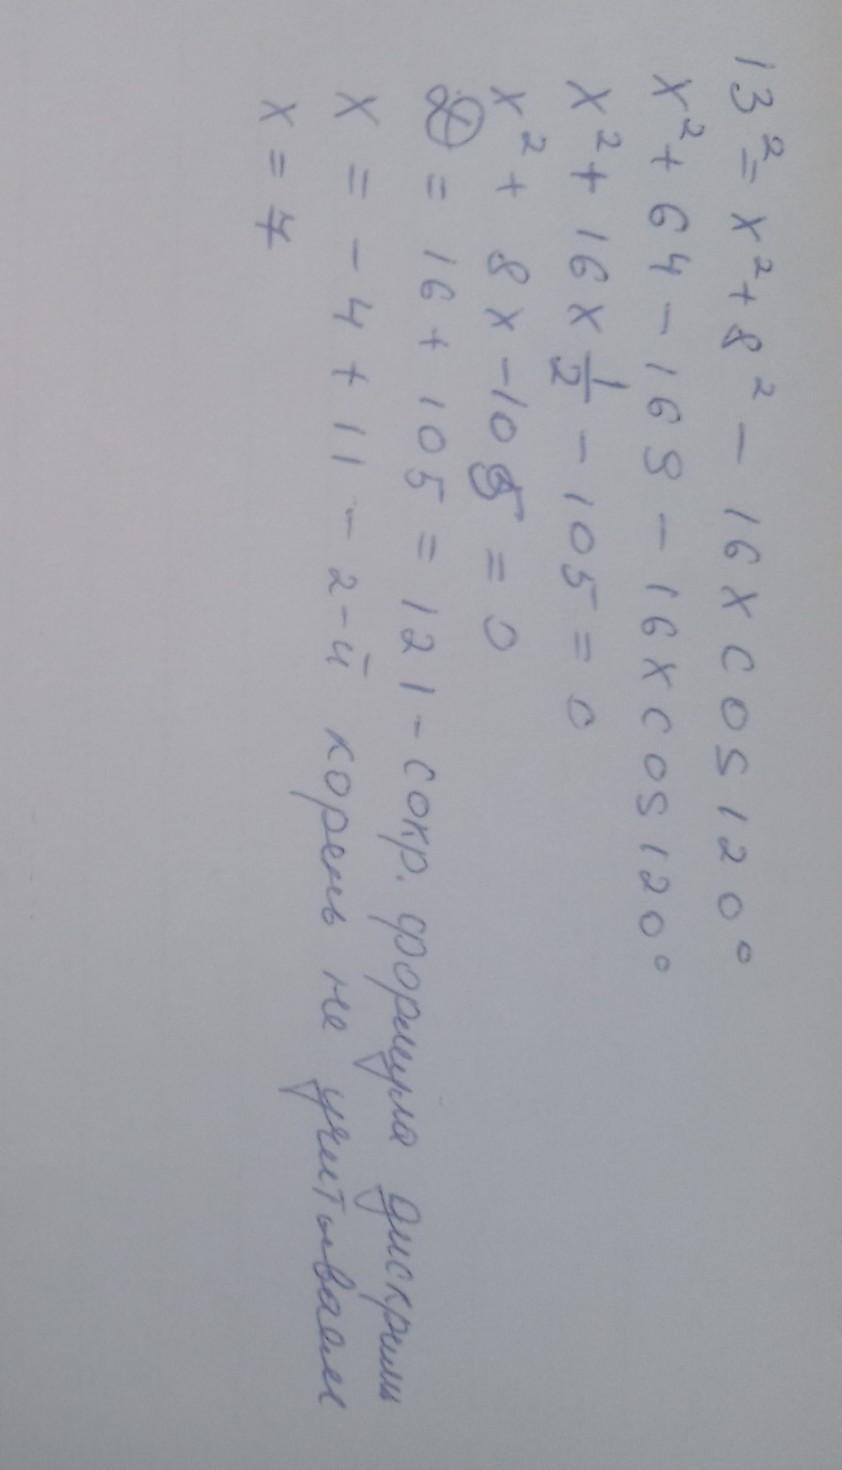 13² = x² + 8² - 16x cos 120°
x² + 64 - 169 - 16x cos 120°
x² + 16x 1/2 - 105 = 0
x² + 8x - 105 = 0
D = 16 + 105 = 121 - сокр. формула дискрим
x = -4 + 11 - 2-й корень не учитываем
x = 7